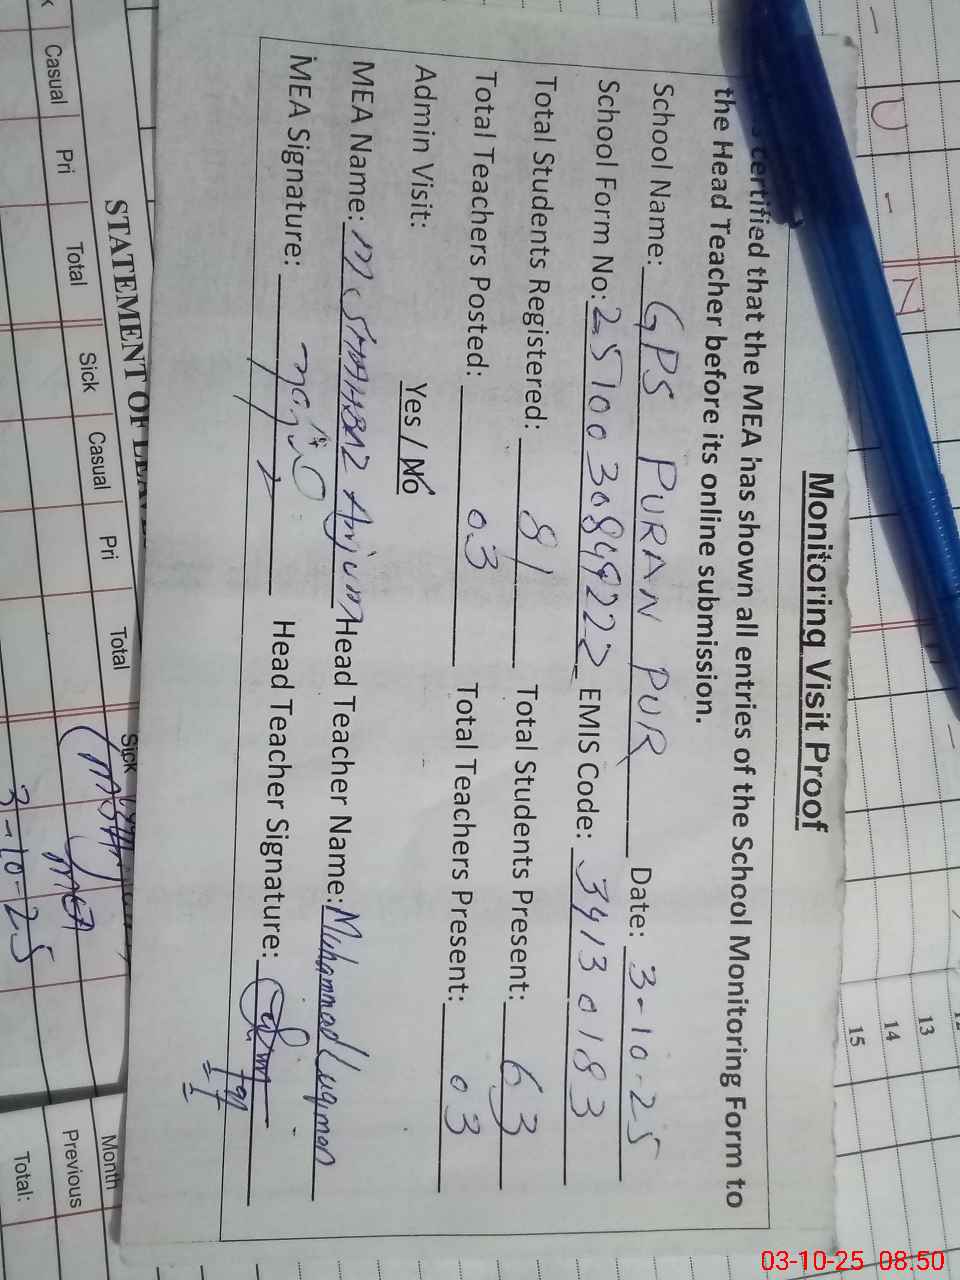 Monitoring Visit Proof
certified that the MEA has shown all entries of the School Monitoring Form to
the Head Teacher before its online submission.
School Name: GPS PURAN PUR Date: 3-10-25
School Form No: 2510030849222 EMIS Code: 34130183
Total Students Registered: 81 Total Students Present: 63
Total Teachers Posted: 03 Total Teachers Present: 03
Admin Visit: Yes / No
MEA Name: Anjum Head Teacher Name: Muhammad Luqman
MEA Signature: Head Teacher Signature:
STATEMENT OF
Casual Pri Total Sick Casual Pri Total Sick
Month
Previous
Total:
MEA
3-10-25
13
14
15
U - N
03-10-25 08:50